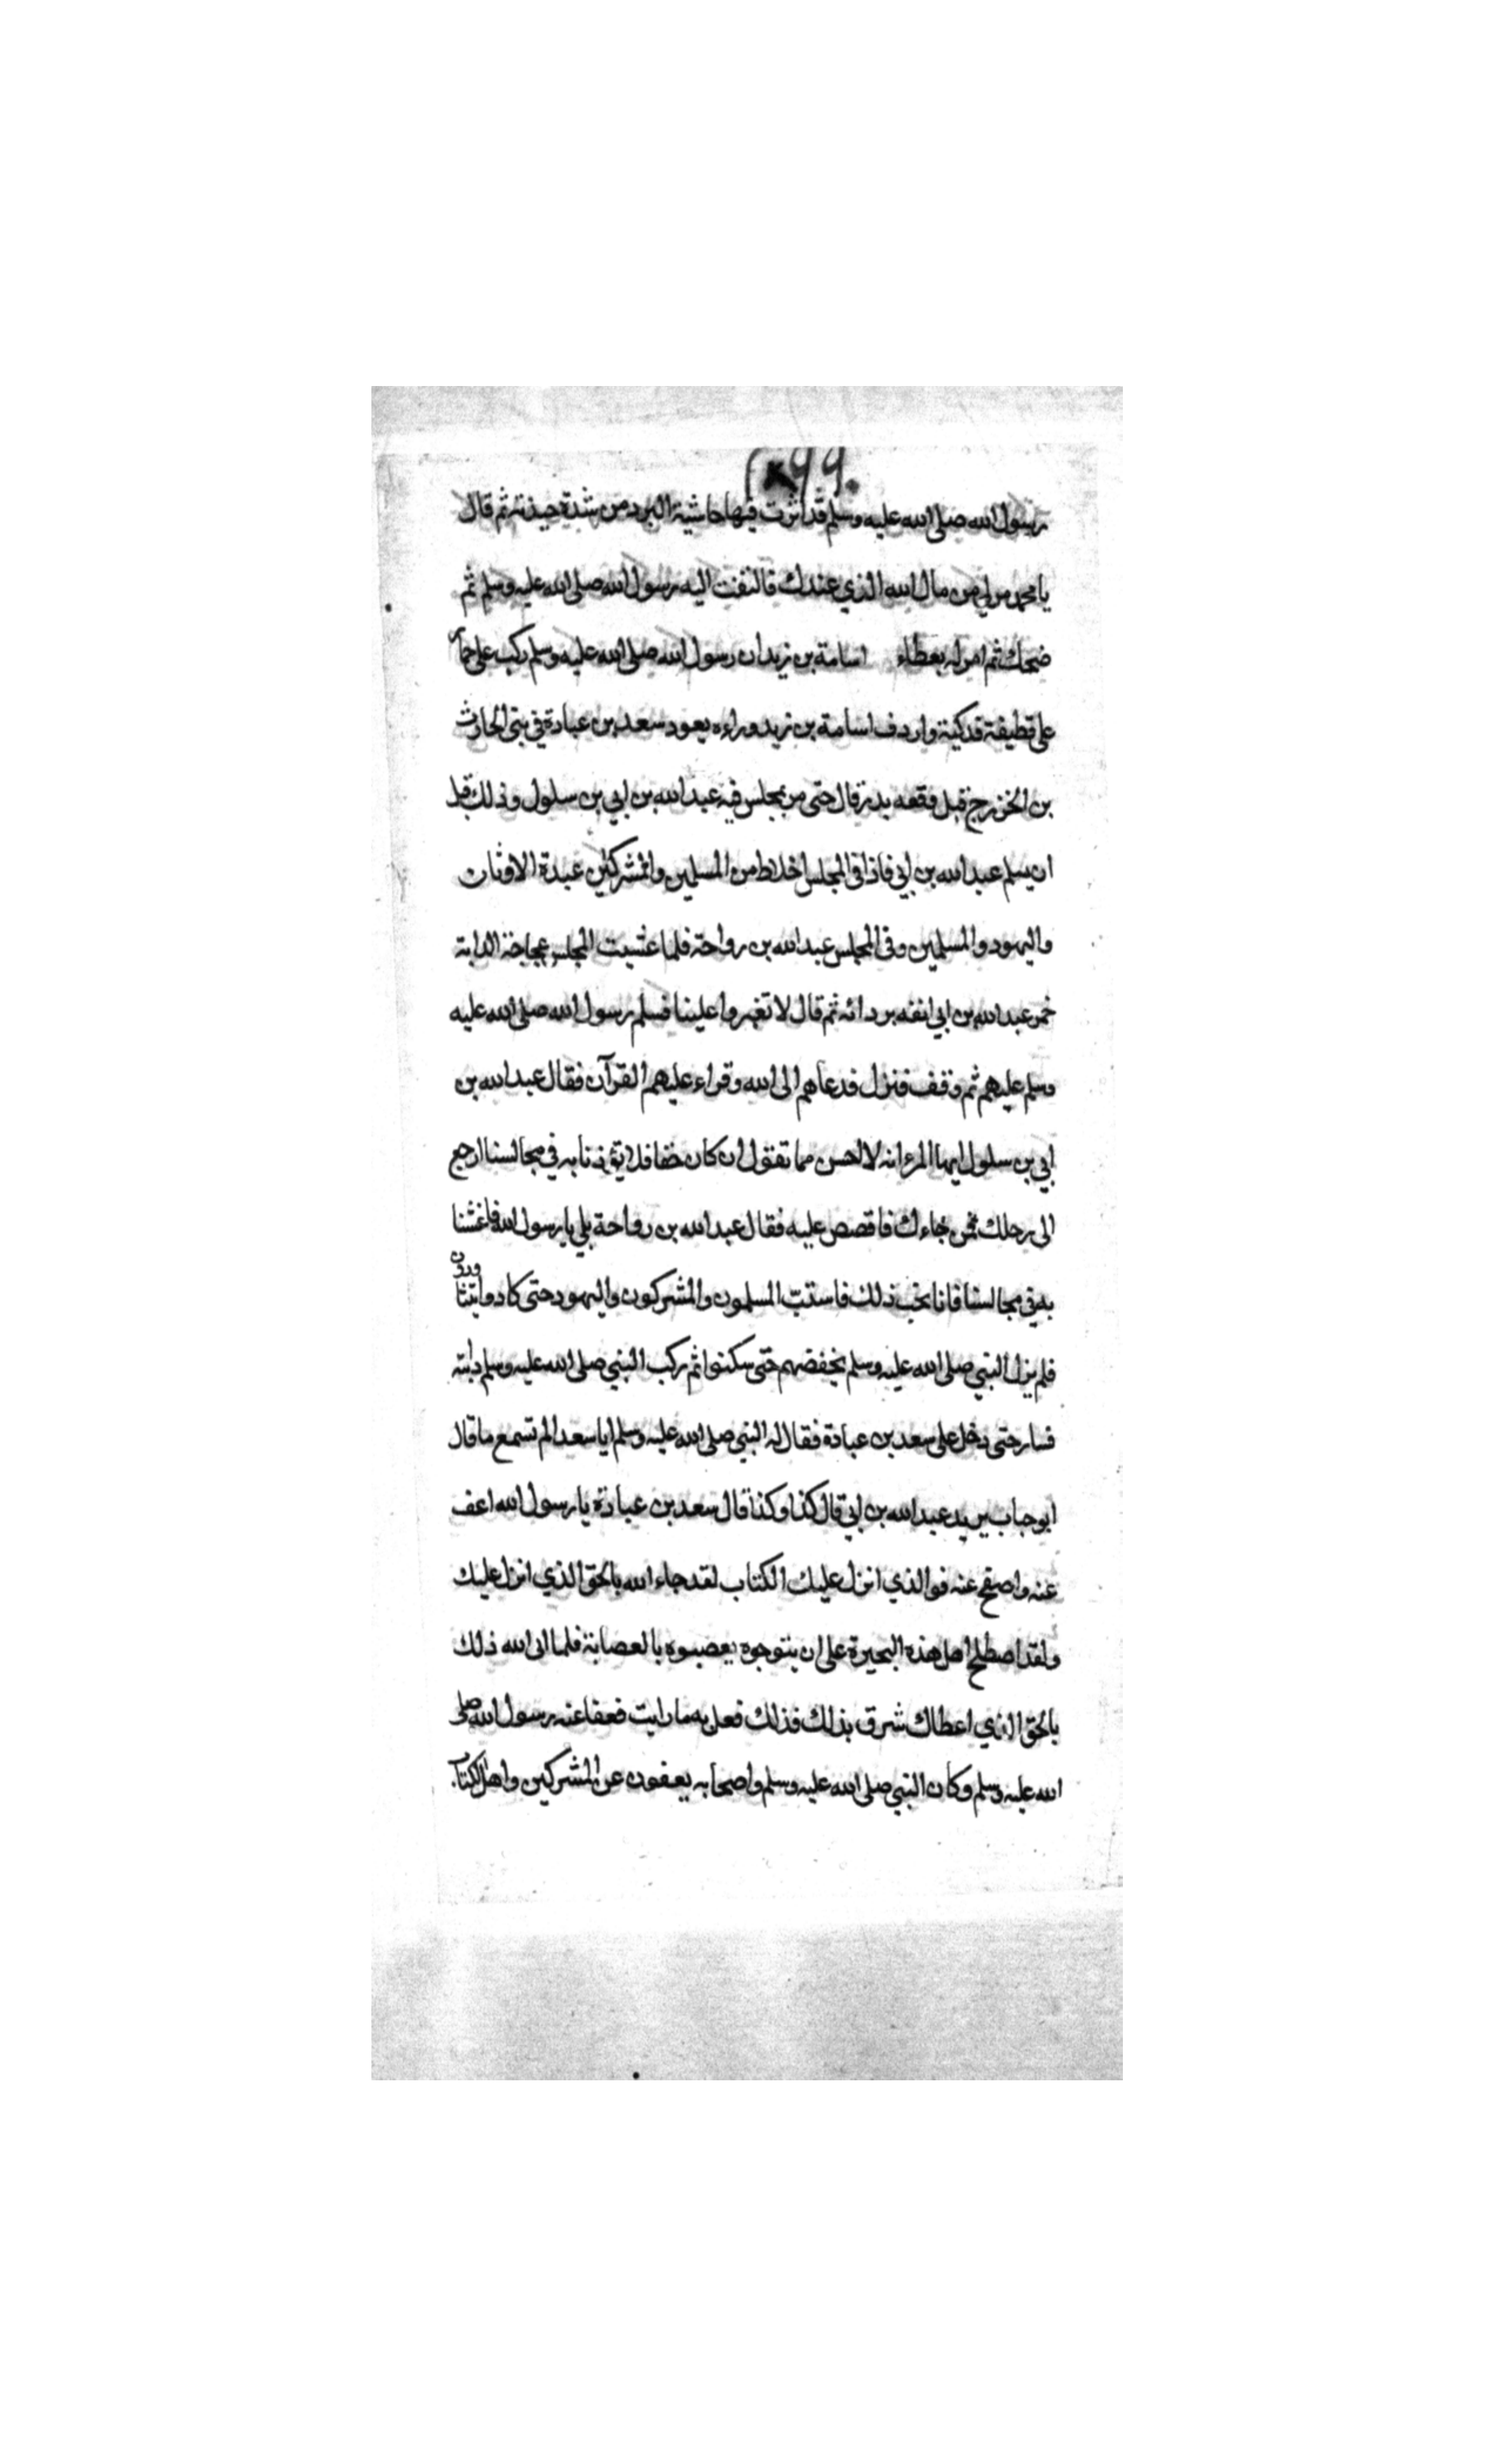 رسول الله صلى الله عليه وسلم قد اثرت فيها حاشية البرد من شدة جبذته ثم قال
يا محمد مر لي من مال الله الذي عندك فالتفت اليه رسول الله صلى الله عليه وسلم ثم
ضحك ثم امر له بعطاء اسامة بن زيد ان رسول الله صلى الله عليه وسلم ركب على حمار
على قطيفة فدكية واردف اسامة بن زيد وراءه يعود سعد بن عبادة في بني الحارث
بن الخزرج قبل وقعه بدر قال حتى مر بمجلس فيه عبد الله بن ابي بن سلول وذلك قبل
ان يسلم عبد الله بن ابي فاذا في المجلس اخلاط من المسلمين والمشركين عبدة الاوثان
واليهود والمسلمين وفي المجلس عبد الله بن رواحة فلما غشيت المجلس عجاجة الدابة
خمر عبد الله بن ابي انفه بردائه ثم قال لا تغبروا علينا فسلم رسول الله صلى الله عليه
وسلم عليهم ثم وقف فنزل فدعاهم الى الله وقراء عليهم القرآن فقال عبد الله بن
ابي بن سلول ايها المرء انه لا احسن مما تقول ان كان حقا فلا تؤذنا به في مجالسنا ارجع
الى رحلك فمن جاءك فاقصص عليه فقال عبد الله بن رواحة بلى يا رسول الله فاغشنا
به في مجالسنا فانا نحب ذلك فاستب المسلمون والمشركون واليهود حتى كادوا يتثاورون
فلم يزل النبي صلى الله عليه وسلم يخفضهم حتى سكنوا ثم ركب النبي صلى الله عليه وسلم دابته
فسار حتى دخل على سعد بن عبادة فقال له النبي صلى الله عليه وسلم ايا سعد الم تسمع ما قال
ابو حباب يريد عبد الله بن ابي قال كذا وكذا قال سعد بن عبادة يا رسول الله اعف
عنه واصفح عنه فوالذي انزل عليك الكتاب لقد جاء الله بالحق الذي انزل عليك
ولقد اصطلح اهل هذه البحيرة على ان يتوجوه يعصبوه بالعصابة فلما ابى الله ذلك
بالحق الذي اعطاك شرق بذلك فذلك فعل به ما رايت فعفا عنه رسول الله صلى
الله عليه وسلم وكان النبي صلى الله عليه وسلم واصحابه يعفون عن المشركين واهل الكتاب